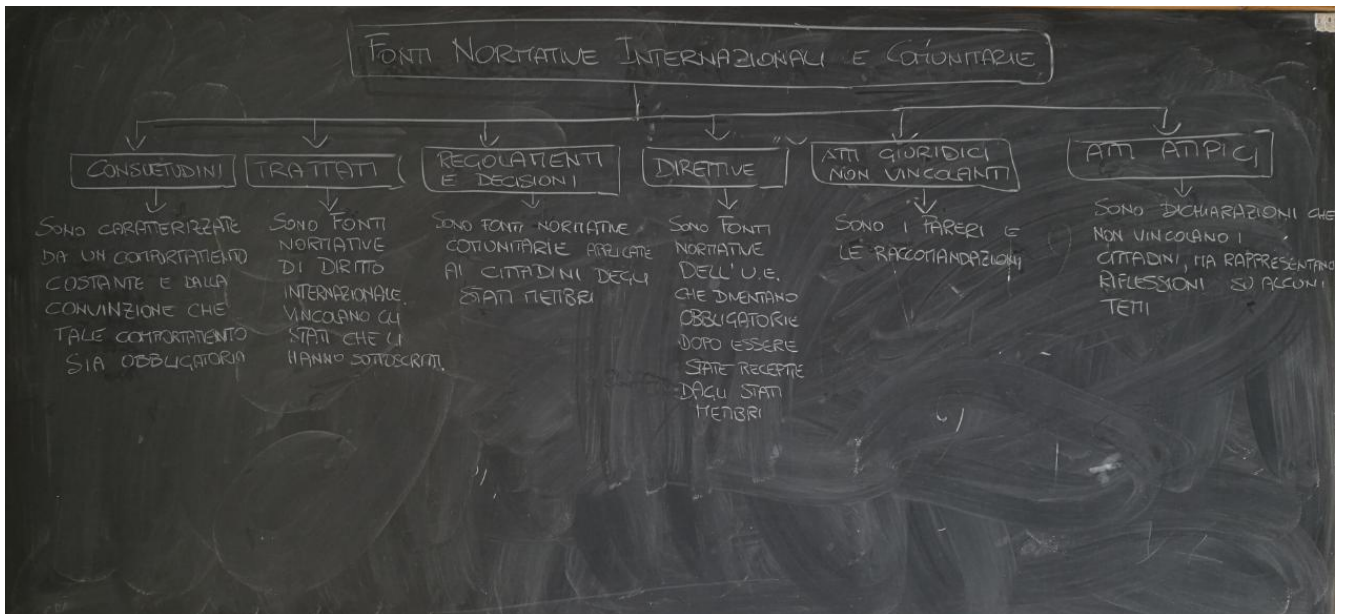 FONTI NORMATIVE INTERNAZIONALI E COMUNITARIE
CONSUETUDINI
SONO CARATTERIZZATE
DA UN COMPORTAMENTO
COSTANTE E DALLA
CONVINZIONE CHE
TALE COMPORTAMENTO
SIA OBBLIGATORIA
TRATTATI
SONO FONTI
NORMATIVE
DI DIRITTO
INTERNAZIONALE.
VINCOLANO GLI
STATI CHE LI
HANNO SOTTOSCRITTI.
REGOLAMENTI
E DECISIONI
SONO FONTI NORMATIVE
COMUNITARIE APPLICATE
AI CITTADINI DEGLI
STATI MEMBRI
DIRETTIVE
SONO FONTI
NORMATIVE
DELL'U.E.
CHE DIVENTANO
OBBLIGATORIE
DOPO ESSERE
STATE RECEPITE
DAGLI STATI
MEMBRI
ATTI GIURIDICI
NON VINCOLANTI
SONO I PARERI E
LE RACCOMANDAZIONI
ATTI ATIPICI
SONO DICHIARAZIONI CHE
NON VINCOLANO I
CITTADINI, MA RAPPRESENTANO
RIFLESSIONI SU ALCUNI
TEMI